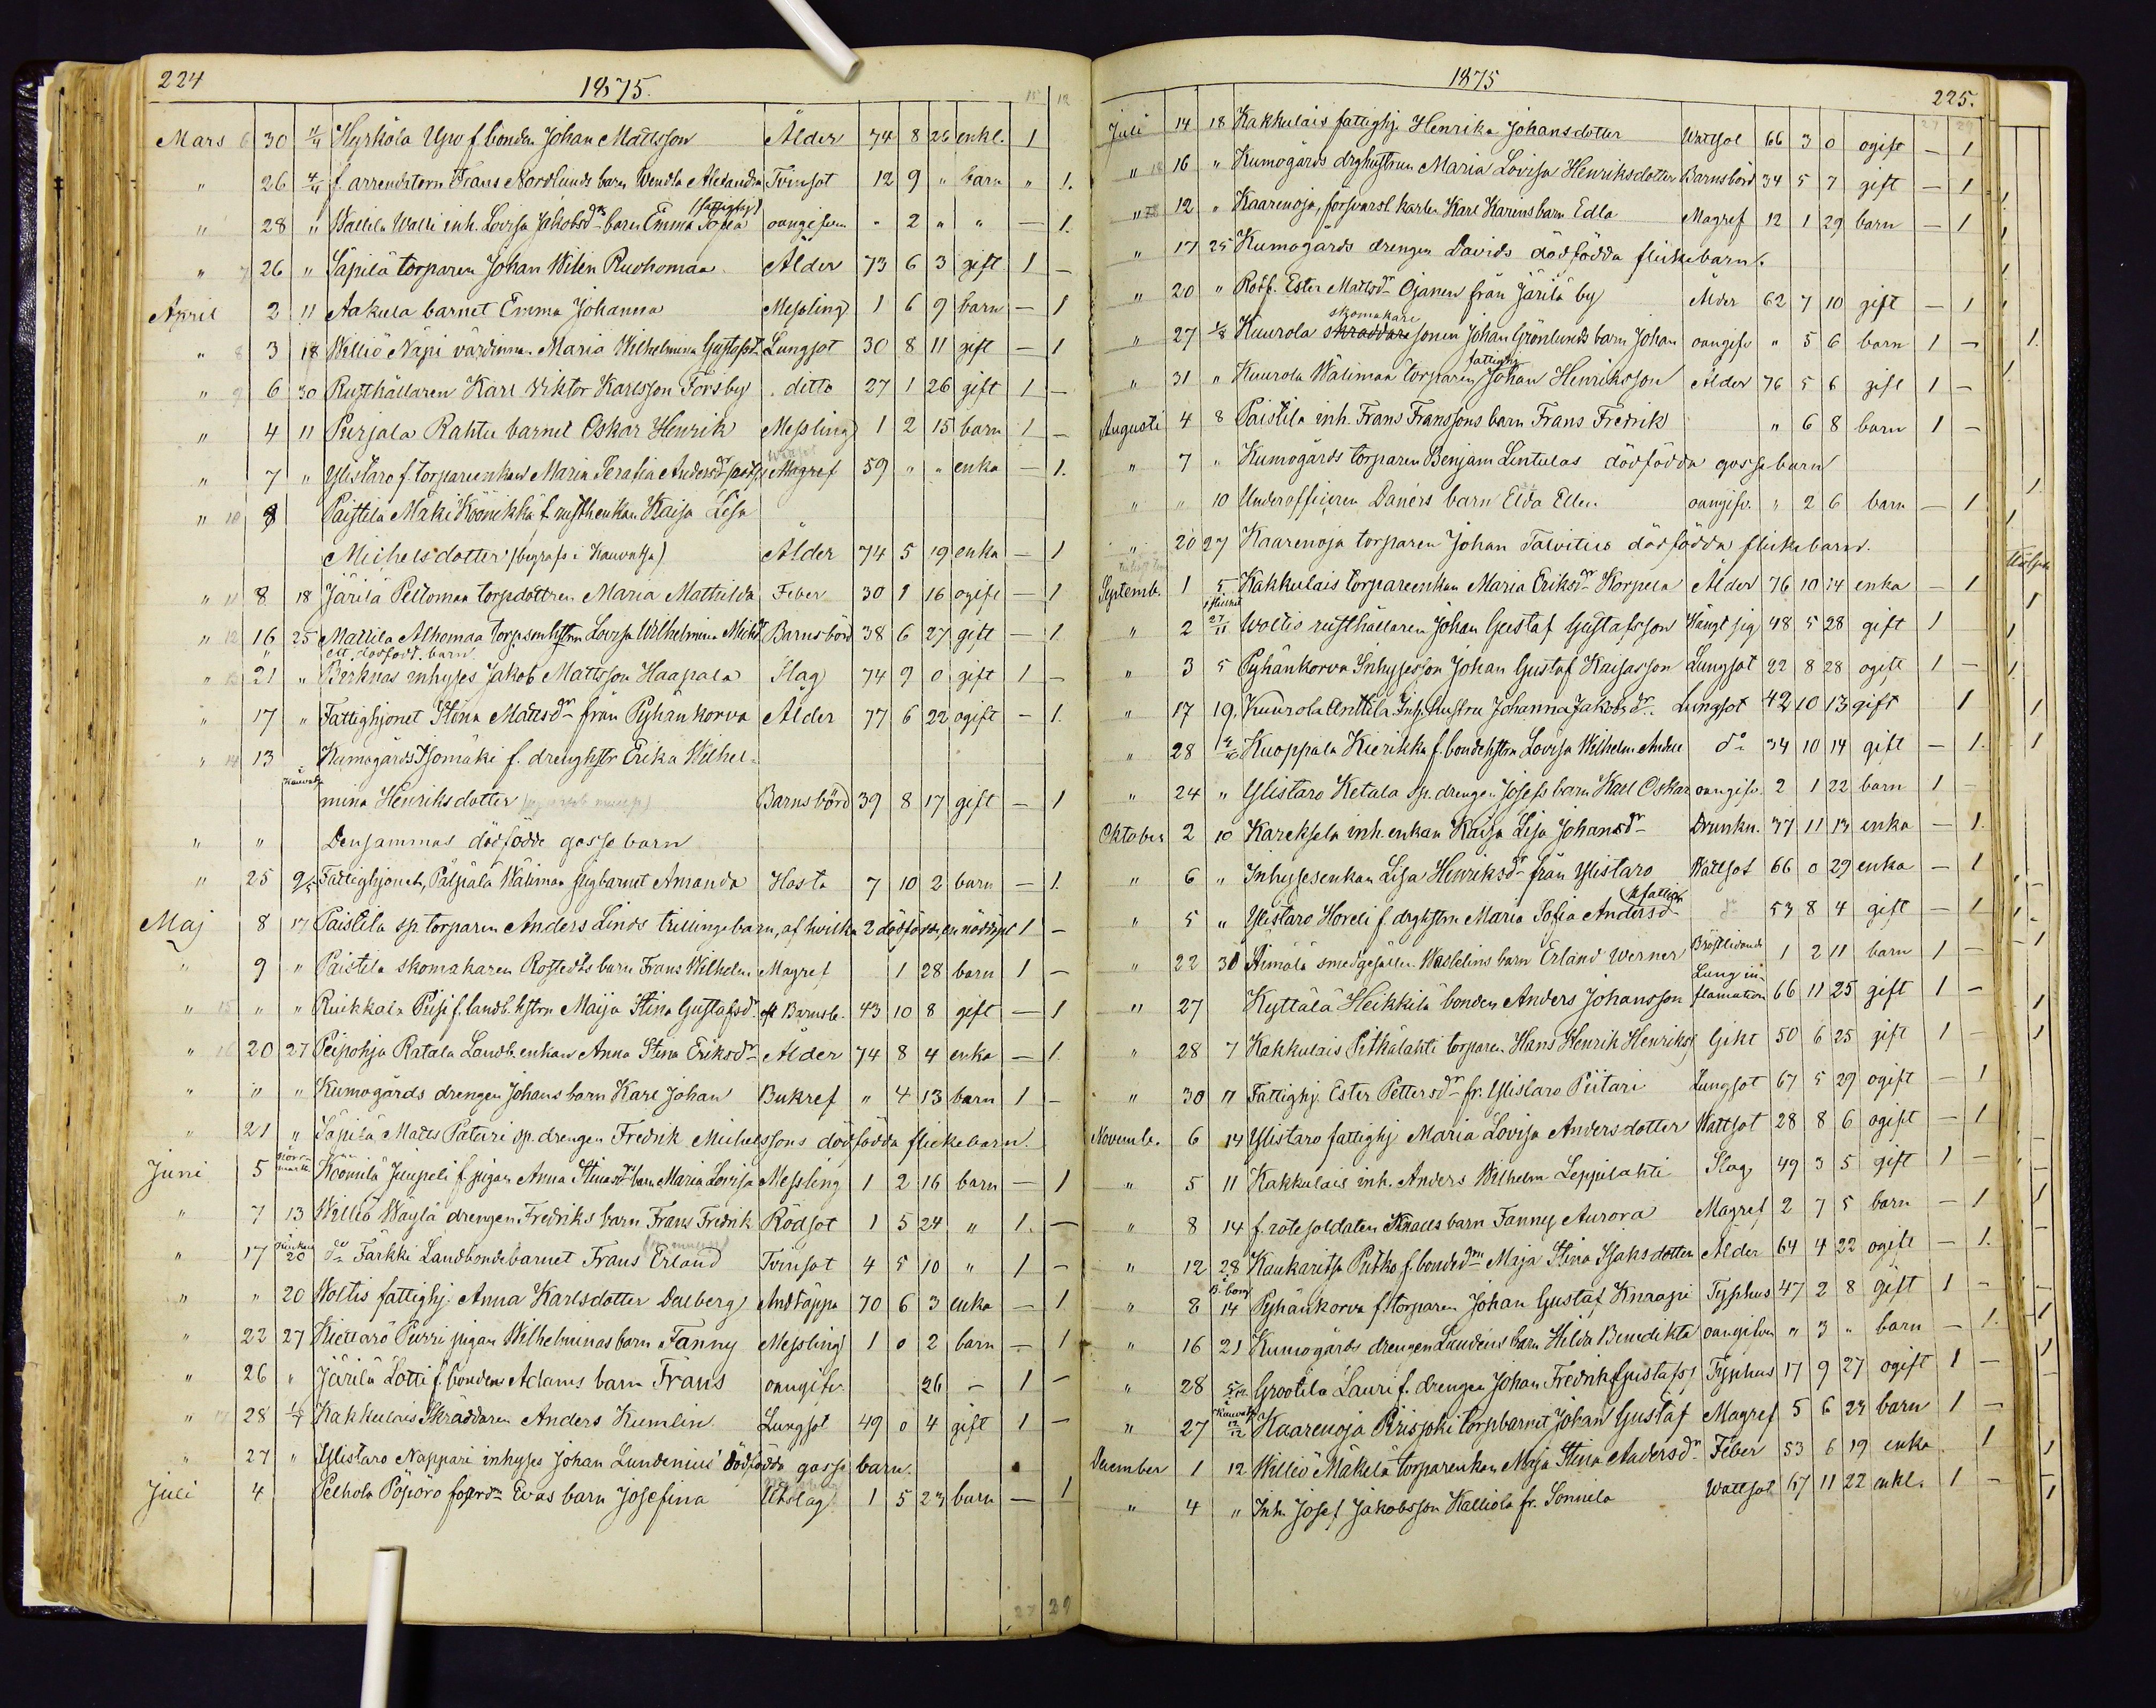 224
1875.
15 12
Mars 6 30 4/4 Hyrköla Ujw f. bonden Johan Mattsson Ålder 74 8 26 enkl. 1
" 26 4/4 f. arrendatorn Frans Nordlunds barn Wendla Alexandra Tvinsot 12 9 " barn " 1.
(fattighj)
" 28 " Wallila Walli inh. Lovisa Jakobsdr barn Emma Sofia oangifven - 2 " " — 1.
" 7 26 " Säpilä torparen Johan Witen Ruohomaa Ålder 73 6 3 gift 1 —
April 2 11 Aakula barnet Emma Johanna Messling 1 6 9 barn — 1
" 8 3 18 Williö Näpi värdinnan Maria Wilhelmina Gustafsd. Lungsot 30 8 11 gift — 1
" 9 6 30 Rusthållaren Karl Viktor Karlsson Forsby ditto 27 1 26 gift 1 —
" 4 11 Purjala Rahtu barnet Oskar Henrik Messling 1 2 15 barn 1 —
" 7 " Ylistaro f. torpareenkan Maria Serafia Andersdr Magref 59 " " enka — 1.
" 10 8 Paistila Mäki Köönikkä f. rusthenkan Kaisa Lisa
Michelsdotter (begrafs i Kauvatsa) Ålder 74 5 19 enka — 1
" 11 8 18 Järilä Peltomaa torpdottren Maria Mathilda Feber 30 1 16 ogift — 1
" 12 16 25 Mattila Alhomaa torpsonhstrn Lovisa Wilhelmina Michsdr Barnsbörd 38 6 27 gift — 1
" ett dödfödt barn
" 13 21 " Berknas inhyses Jakob Mattsson Haapala Slag 74 9 0 gift 1 —
" 17 " Fattighjonet Stina Mattsdr från Pyhänkorva Ålder 77 6 22 ogift — 1.
" 14 13 Kumogårds Isomäki f. drenghstr Erika Wilhel-
Kauvatsa
mina Henriksdotter Barnsbörd 39 8 17 gift — 1
" " Densammas dödfödde gossebarn
" 25 2/5 Fattighjonet, Pälpälä Wäliman pigbarnet Amanda Hosta 7 10 2 barn — 1.
Maj 8 17 Paistila sp. torparen Anders Linds trillingebarn, af hvilka 2 dödfödda, en nöddöpt 1 —
" 9 " Paistila skomakaren Rostedts barn Frans Wilhelm Magref 1 28 barn 1 —
" 15 " " Ruikkala Pisi f. landb. hstrn Maija Stina Gustafsdr Barnsb. 43 10 8 gift — 1
" 16 20 27 Peipohja Ratala Landb. enkan Anna Stina Eriksdr Ålder 74 8 4 enka — 1.
" " " Kumogårds drengen Johans barn Karl Johan Bukref " 4 13 barn 1 —
" 21 " Säpilä Matts Paturi sp. drengen Fredrik Michelssons dödfödda flickebarn.
Juni 5 Norrmark Koomilä Juupeli f. pigan Anna Stinas barn Maria Lovisa Messling 1 2 16 barn — 1
" 7 13 Williö Wäylä drengen Fredriks barn Frans Fredrik Rödsot 1 5 24 " 1. —
" 17 20 do Färkki Landbondebarnet Frans Erland Tvinsot 4 5 10 " 1 —
" " 20 Woltis fattighj. Anna Karlsdotter Dalberg Andtäppa 70 6 3 enka — 1
" 22 27 Kiettarö Purri pigan Wilhelminas barn Fanny Messling 1 0 2 barn — 1
" 26 " Järilä Lotti f. bonden Adams barn Frans oangifv. 26 — 1 —
" 17 28 1/7 Kakkulais Skräddaren Anders Kumlin Lungsot 49 0 4 gift 1 —
" 27 " Ylistaro Nappari inhyses Johan Lundenius' dödfödda gossebarn.
Juli 4 Pelhola Pöpörö Evas barn Josefina Utslag 1 5 23 barn — 1
27 29
1875
225.
27 29
Juli 14 18 Kakkulais fattighj. Henrika Johansdotter Wattsot 66 3 0 ogift — 1
" 18 16 " Kumogårds drghustrun Maria Lovisa Henriksdotter Barnsbörd 34 5 7 gift — 1
" 12 " Kaarenoja, forsvarsl. karlen Karl Karins barn Edla Magref 12 1 29 barn — 1
" 17 25 Kumogårds drengen Davids dödfödda flickebarn.
" 20 " Rotf. Ester Mattsdr Ojanen från Järilä by Ålder 62 7 10 gift — 1
skomakare
" 27 1/8 Kuurola skräddare sonen Johan Grönlunds barn Johan oangifv " 5 6 barn 1 —
fattighj
" 31 " Kuurola Wälimaa torparen Johan Henriksson Ålder 76 5 6 gift 1 —
Augusti 4 8 Paistila inh. Frans Franssons barn Frans Fredrik " 6 8 barn 1 —
" 7 " Kumogårds torparen Benjam Lintulas dödfödda gossebarn
" " 10 Underofficeren Danérs barn Elda Ellen oangifv. " 2 6 barn — 1
" 20 27 Kaarenoja torparen Johan Talvitius dödfödda flickebarn.
Septemb. 1 5 Kakkulais torpareenkan Maria Eriksdr Korpela Ålder 76 10 14 enka — 1
" 2 27/11 Woltis rusthållaren Johan Gustaf Gustafsson Hängt sig 48 5 28 gift 1
" 3 5 Pyhänkorva Inhysesson Johan Gustaf Kaisasson Lungsot 22 8 28 ogift 1 —
" 17 19. Kuurola Anttila Inh. hustru Johanna Jakobsdr. Lungsot 42 10 13 gift 1
" 28 Kuoppala Kierikka f. bondehstrn Lovisa Wilhelm. Andr do 34 10 14 gift — 1.
" 24 " Ylistaro Ketala sp. drengen Josefs barn Karl Oskar oangifv. 2 1 22 barn 1 —
Oktober 2 10 Kareksela inh. enkan Kaisa Lisa Johansdr Drunkn. 37 11 13 enka — 1.
" 6 " Inhysesenkan Lisa Henriksdr från Ylistaro Wattsot 66 0 29 enka — 1
" 5 " Ylistaro Horeli f. drghstrn Maria Sofia Andersdr do 53 8 4 gift — 1
" 22 31 Äimälä smedgesällen Wasselins barn Erland Werner Bröstlidande 1 2 11 barn 1 —
" 27 Kyttälä Heikkilä bonden Anders Johansson Lunginflamation 66 11 25 gift 1 —
" 28 7 Kakkulais Pitkälahti torparen Hans Henrik Henriks Gikt 50 6 25 gift 1 —
" 30 " Fattighj. Ester Pettersdr fr. Ylistaro Piitari Lungsot 67 5 29 ogift — 1
Novemb. 6 14 Ylistaro fattighj Maria Lovisa Andersdotter Wattsot 28 8 6 ogift — 1
" 5 11 Kakkulais inh. Anders Wilhelm Leppilahti Slag 49 3 5 gift 1 —
" 8 14 f. rotesoldaten Knaels barn Fanny Aurora Magref 2 7 5 barn — 1
" 12 28 Kaukaritsa Pitko f. bonded. Maja Stina Isaksdotter Ålder 64 4 22 ogift — 1.
" 8 14 Pyhänkorva f. torparen Johan Gustaf Knaapi Typhus 47 2 8 gift 1 —
" 16 21 Kumogårds drengen Laudens barn Hilda Benedikta oangifven " 3 " barn — 1.
" 28 5/12 Grootila Lauri f. drengen Johan Fredrik Gustafs Typhus 17 9 27 ogift 1 —
" 27 Kauvatsa 12/12 Kaarenoja Piirisjoki torpbarnet Johan Gustaf Magref 5 6 23 barn 1 —
December 1 12 Williö Mäkelä torparenkan Maja Stina Andersdr Feber 53 6 19 enka 1
" 4 " Inh. Josef Jakobsson Kalliola fr. Sonnila Wattsot 67 11 22 enkl. 1 —